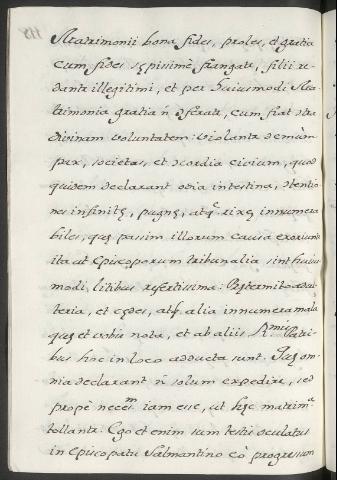 Matrimonii bona fides, proles, et gratia
cum fides sępissimè frangatr, filii re-
dantr illegitimi, et per huiusmodi Ma
trimonia gratia ñ ɔferatr, cum fiat ɔtra
divinam voluntatem: violantr demùm
pax, societas, et ɔcordia civium, quod
quidem declarant odia intestina, ɔtentio
nes infinitę, pugnę, atq̃ rixę innumera
biles, quę passim illorum causa exoriuntr
ita ut Episcoporum tribunalia sint huius
modi litibus refertissima: Prętermito adul
teria, et cędes, atq̃ alia innumera mala
quę et vobis nota, et ab aliis Rmis Patri
bus hic in loco adducta sunt. Quę om
nia declarant ñ solum expedire, sed
propè necem iam esse, ut hęc matrima
tollantr: Ego et enim sum testis oculatus
in Episcopatu Salmantino eò progressum